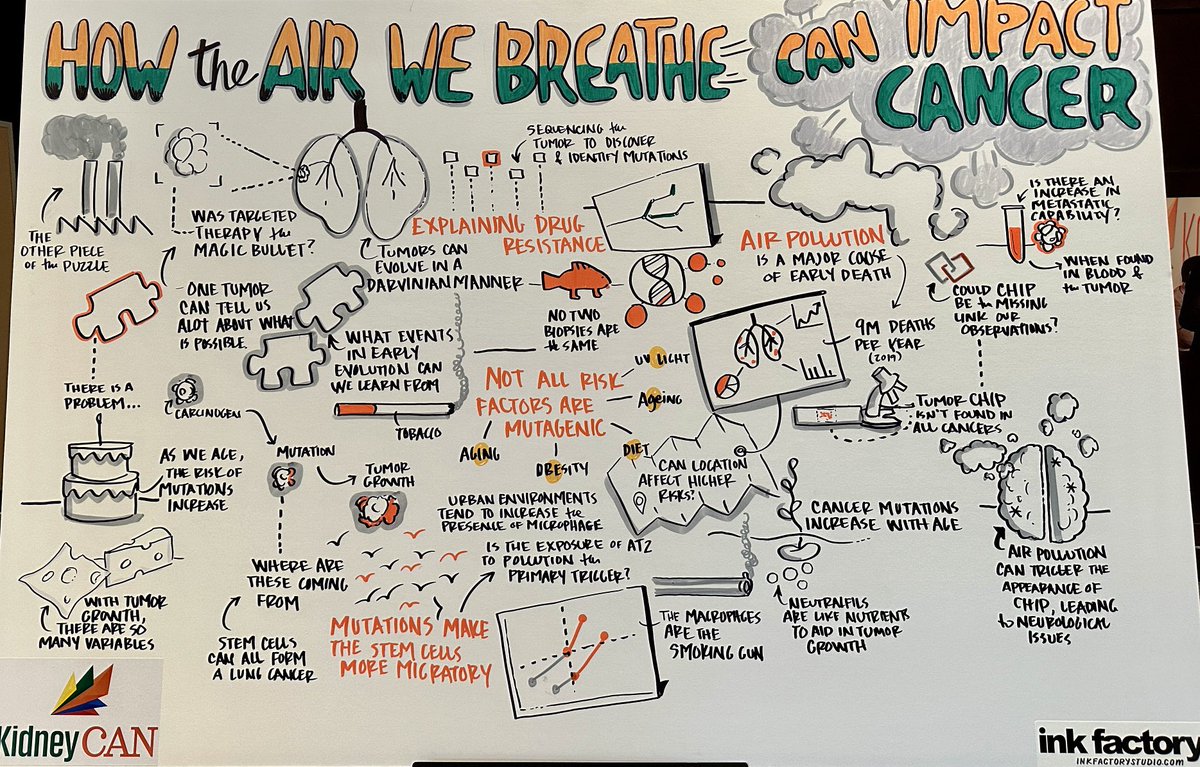 HOW the AIR WE BREATHE CAN IMPACT
CANCER
THE
OTHER PIECE
of the PUZZLE
WAS TARGETED
THERAPY the
MAGIC BULLET?
TUMORS CAN
EVOLVE IN A
DARVINIAN MANNER
SEQUENCING the
TUMOR TO DISCOVER
& IDENTIFY MUTATIONS
EXPLAINING DRUG
RESISTANCE
NO TWO
BIOPSIES ARE
the SAME
AIR POLLUTION
IS A MAJOR CAUSE
OF EARLY DEATH
9M DEATHS
PER YEAR
(2019)
IS THERE AN
INCREASE IN
METASTATIC
CAPABILITY?
WHEN FOUND
IN BLOOD &
the TUMOR
COULD CHIP
BE the MISSING
LINK OUR
OBSERVATIONS?
TUMOR CHIP
ISN'T FOUND IN
ALL CANCERS
ONE TUMOR
CAN TELL US
ALOT ABOUT WHAT
IS POSSIBLE.
WHAT EVENTS
IN EARLY
EVOLUTION CAN
WE LEARN FROM
THERE IS A
PROBLEM...
CARCINOGEN
MUTATION
TUMOR
GROWTH
TOBACCO
NOT ALL RISK
FACTORS ARE
MUTAGENIC
UV LIGHT
Ageing
DIET
OBESITY
AGING
AS WE AGE,
THE RISK OF
MUTATIONS
INCREASE
URBAN ENVIRONMENTS
TEND TO INCREASE the
PRESENCE OF MICROPHAGE
CAN LOCATION
AFFECT HIGHER
RISKS?
CANCER MUTATIONS
INCREASE WITH AGE
WHERE ARE
THESE COMING
FROM
IS THE EXPOSURE OF AT2
TO POLLUTION the
PRIMARY TRIGGER?
WITH TUMOR
GROWTH,
THERE ARE SO
MANY VARIABLES
STEM CELLS
CAN ALL FORM
A LUNG CANCER
MUTATIONS MAKE
THE STEM CELLS
MORE MIGRATORY
THE MACROPAGES
ARE THE
SMOKING GUN
NEUTRALFILS
ARE LIKE NUTRIENTS
TO AID IN TUMOR
GROWTH
AIR POLLUTION
CAN TRIGGER THE
APPEARANCE OF
CHIP, LEADING
to NEUROLOGICAL
ISSUES
KidneyCAN
ink factory
INKFACTORYSTUDIO.COM